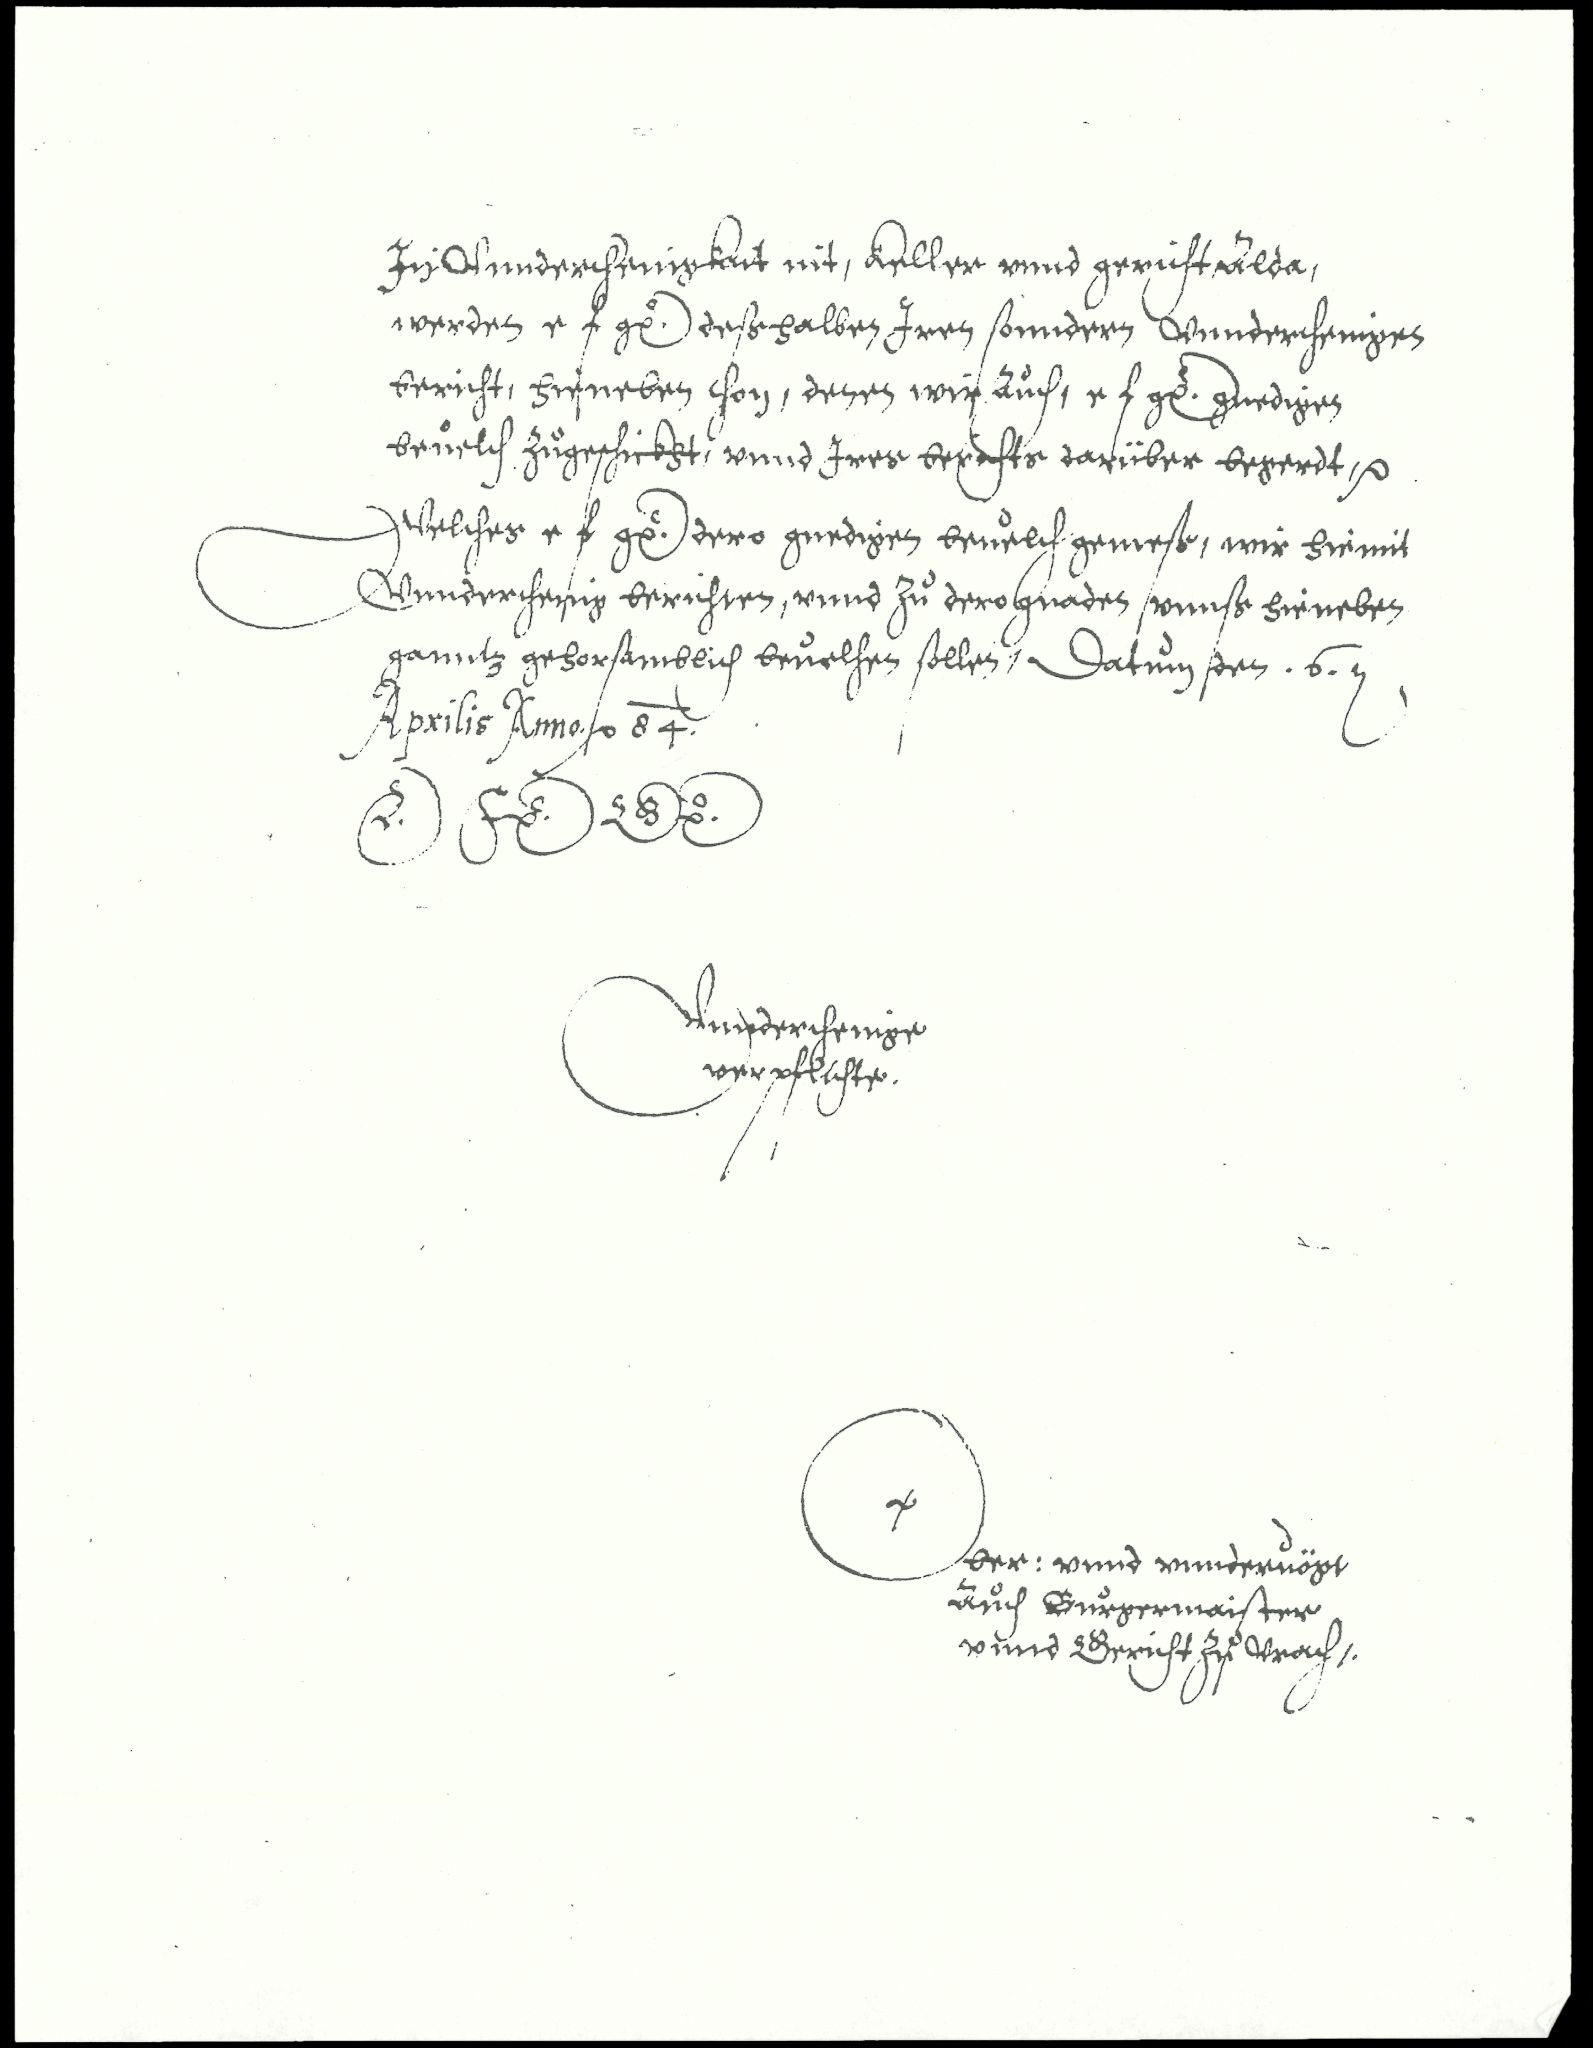 In Vnnderthenigkait nit, Keller vnnd gericht Alda,
werden e f gn. desshalben Iren sonndern Vnnderthenigen
bericht, hieneben thon, denen wir Auch, e f gn. gnedigen
beuelch Zugeschickht, vnnd Ires berichts darüber begerdt,
Welches e f gn. dero gnedigen beuelch gemess, wir hiemit
Vnnderthenig berichten, vnnd Zu dero gnaden vnnss hieneben
ganntz gehorsamblich beuelhen sollen, Datum den . 6. n
Aprilis Anno 84.
E. F. G.
Vnnderthenige
verpflichte.
Ober: vnnd vnnderuögt
Auch Burgermaister
vnnd Gericht Zu Vrach.